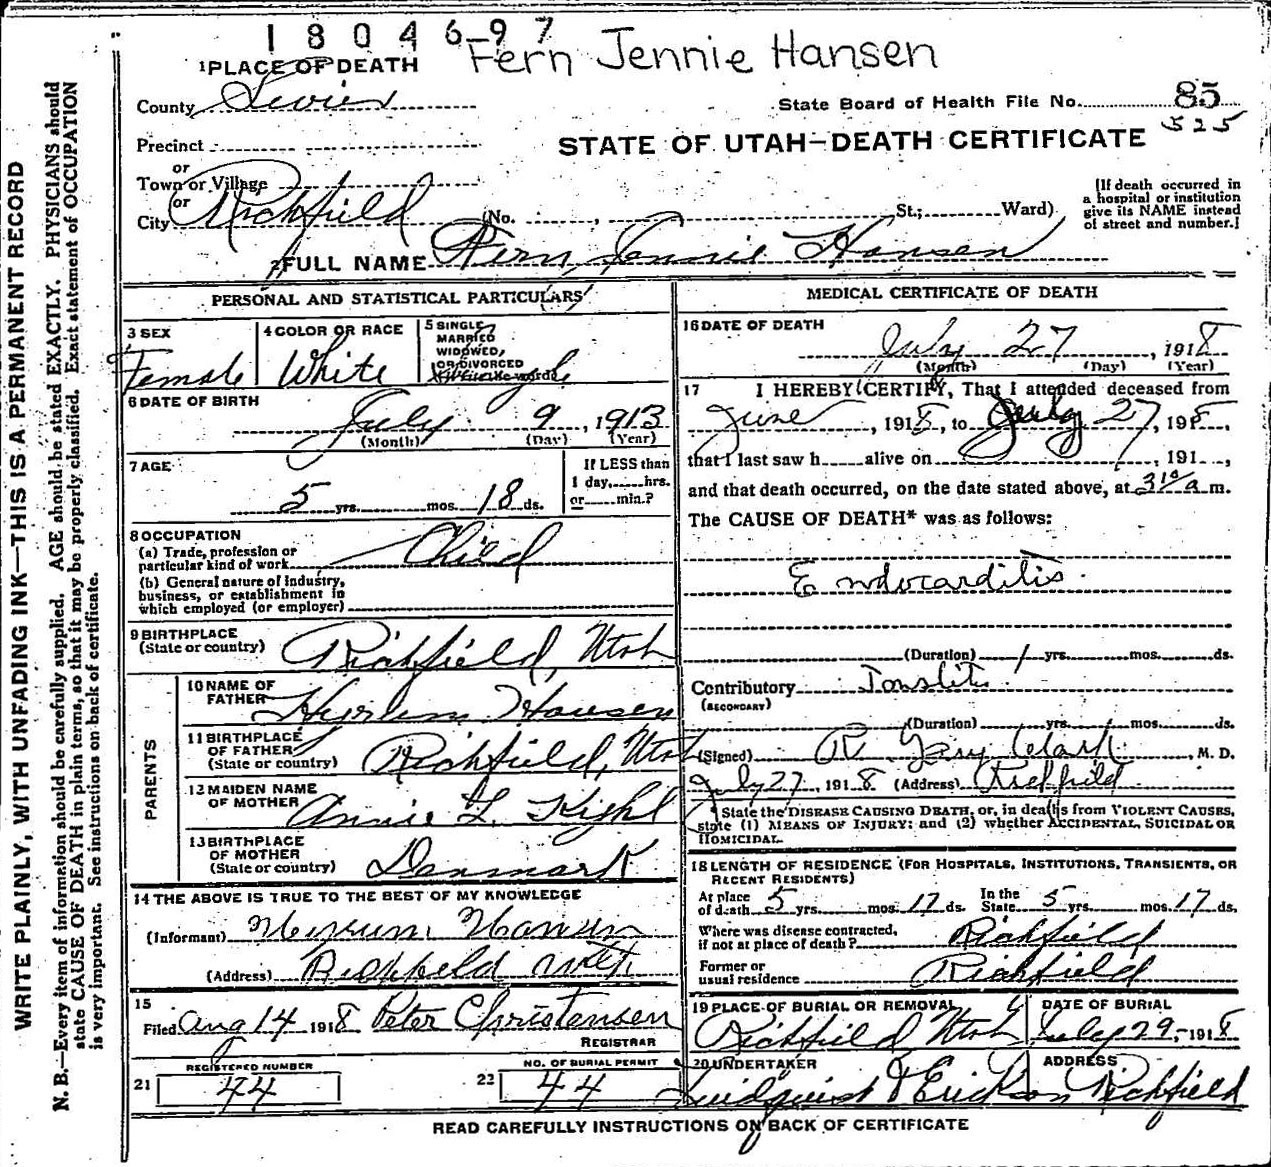 1 8 0 4 6 9 7
Fern Jennie Hansen
1 PLACE OF DEATH
County Sevier
State Board of Health File No. 85
525
Precinct
STATE OF UTAH—DEATH CERTIFICATE
or
Town or Village
or
City Richfield (No. , St.; Ward)
[If death occurred in
a hospital or institution
give its NAME instead
of street and number.]
2 FULL NAME Fern Jennie Hansen
PERSONAL AND STATISTICAL PARTICULARS
3 SEX
Female
4 COLOR OR RACE
White
5 SINGLE
MARRIED
WIDOWED,
OR DIVORCED
Single
6 DATE OF BIRTH
July 9, 1913
(Month) (Day) (Year)
7 AGE
5 yrs. mos. 18 ds.
If LESS than
1 day, hrs.
or min.?
8 OCCUPATION
(a) Trade, profession or
particular kind of work Child
(b) General nature of Industry,
business, or establishment in
which employed (or employer)
9 BIRTHPLACE
(State or country) Richfield, Utah
PARENTS
10 NAME OF
FATHER Hyrum Hansen
11 BIRTHPLACE
OF FATHER
(State or country) Richfield, Utah
12 MAIDEN NAME
OF MOTHER Annie L.
13 BIRTHPLACE
OF MOTHER
(State or country) Denmark
14 THE ABOVE IS TRUE TO THE BEST OF MY KNOWLEDGE
(Informant) Hyrum Hansen
(Address) Richfield Utah
15
Filed Aug 14 1918 Peter Christensen
REGISTRAR
21 REGISTERED NUMBER
44
22 NO. OF BURIAL PERMIT
44
MEDICAL CERTIFICATE OF DEATH
16 DATE OF DEATH
July 27, 1918
(Month) (Day) (Year)
17 I HEREBY CERTIFY, That I attended deceased from
June, 1918, to July 27, 1918,
that I last saw h alive on , 191 ,
and that death occurred, on the date stated above, at a m.
The CAUSE OF DEATH* was as follows:
Endocarditis
(Duration) 1 yrs. mos. ds.
Contributory Tonslitis
(SECONDARY)
(Duration) yrs. mos. ds.
(Signed) R. Gary Clark, M. D.
July 27, 1918 (Address) Richfield
State the DISEASE CAUSING DEATH, or, in deaths from VIOLENT CAUSES,
state (1) MEANS OF INJURY; and (2) whether ACCIDENTAL, SUICIDAL OR
HOMICIDAL.
18 LENGTH OF RESIDENCE (FOR HOSPITALS, INSTITUTIONS, TRANSIENTS, OR
RECENT RESIDENTS)
At place
of death 5 yrs. mos. 17 ds.
In the
State 5 yrs. mos. 17 ds.
Where was disease contracted,
if not at place of death? Richfield
Former or
usual residence Richfield
19 PLACE OF BURIAL OR REMOVAL
Richfield Utah
DATE OF BURIAL
July 29, 1918
20 UNDERTAKER
Lindquist & Erickson
ADDRESS
Richfield
READ CAREFULLY INSTRUCTIONS ON BACK OF CERTIFICATE
WRITE PLAINLY, WITH UNFADING INK—THIS IS A PERMANENT RECORD
N. B.—Every item of information should be carefully supplied. AGE should be stated EXACTLY. PHYSICIANS should
state CAUSE OF DEATH in plain terms, so that it may be properly classified. Exact statement of OCCUPATION
is very important. See instructions on back of certificate.